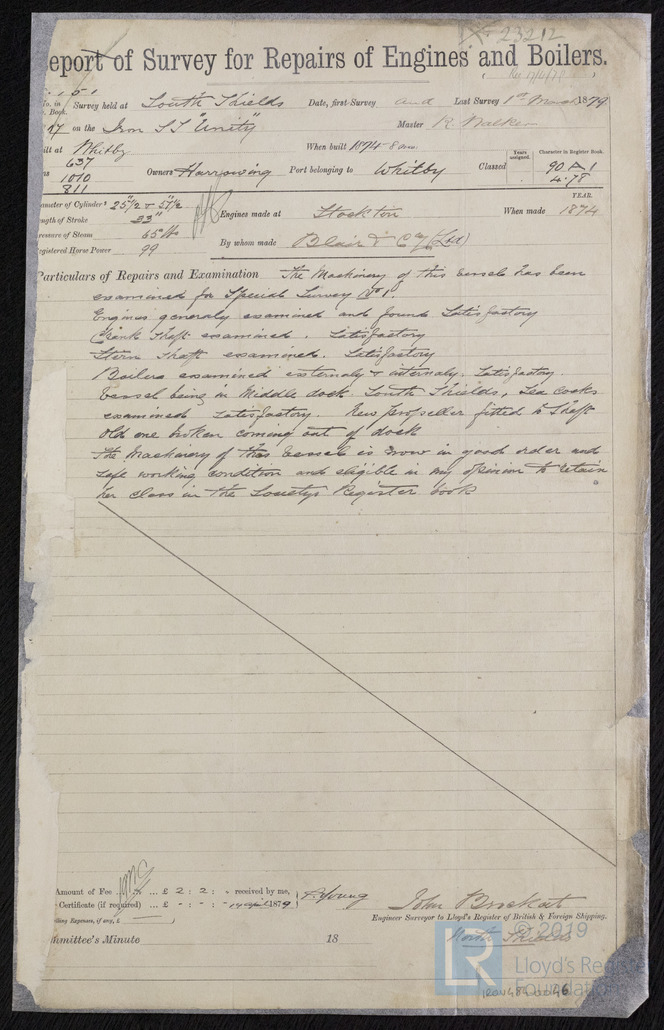 23212
eport of Survey for Repairs of Engines and Boilers.
No. in Survey held at South Shields Date, first Survey and Last Survey 1st March 1879
Book.
17 on the Iron SS "Unity" Master R. Walker
ilt at Whitby When built 1874 - 8 mo.
637
1010
811
Owners Harrowing Port belonging to Whitby Classed Years assigned. Character in Register Book.
90 A 1
4.78
ameter of Cylinders 25 1/2 + 51 1/2
ngth of Stroke 33"
ressure of Steam 65 lbs
egistered Horse Power 99
Engines made at Stockton When made YEAR. 1874
By whom made Blair & Coy (Ltd)
Particulars of Repairs and Examination The Machinery of this vessel has been
examined for Special Survey No 1.
Engines generaly examined and found Satisfactory
Crank Shaft examined. Satisfactory
Stern Shaft examined. Satisfactory
Boilers examined externaly & internaly. Satisfactory.
Vessel being in Middle dock South Shields, Sea cocks
examined Satisfactory. New propeller fitted to Shaft
Old one broken coming out of dock
The Machinery of this Vessel is now in good order and
safe working condition and eligible in my opinion to retain
her class in the Societys Register book
Amount of Fee ... £ 2 : 2 : - received by me,
Certificate (if required) ... £ - : - : - 14 April 1879
lling Expenses, if any, £
Young
John Brockat
Engineer Surveyor to Lloyd's Register of British & Foreign Shipping.
North Shields
mmittee's Minute 18
© 2019
LR
Lloyd's Regis
Foundation
IRON484-0046